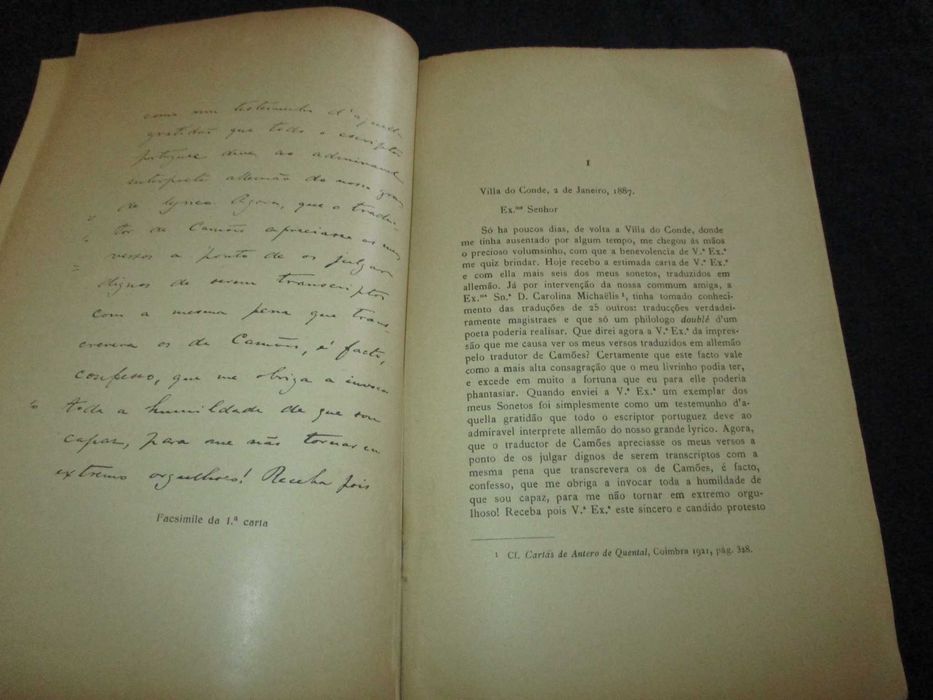 como um testemunho d'aquella
gratidão que todo o escriptor
portuguez deve ao admiravel
interprete allemão do nosso gran-
de lyrico. Agora, que o traduc-
tor de Camões apreciasse os meus
versos a ponto de os julgar
dignos de serem transcriptos
com a mesma pena que trans-
crevera os de Camões, é facto,
confesso, que me obriga a invocar
toda a humildade de que sou
capaz, para me não tornar em
extremo orgulhoso! Receba pois
Facsimile da 1.ª carta
I
Villa do Conde, 2 de Janeiro, 1887.
Ex.mo Senhor
Só ha poucos dias, de volta a Villa do Conde, donde
me tinha ausentado por algum tempo, me chegou ás mãos
o precioso volumsinho, com que a benevolencia de V.ª Ex.ª
me quiz brindar. Hoje recebo a estimada carta de V.ª Ex.ª
e com ella mais seis dos meus sonetos, traduzidos em
allemão. Já por intervenção da nossa commum amiga, a
Ex.ma Sn.ª D. Carolina Michaëlis¹, tinha tomado conheci-
mento das traduções de 25 outros: traducções verdadei-
ramente magistraes e que só um philologo doublé d'um
poeta poderia realisar. Que direi agora a V.ª Ex.ª da impres-
são que me causa ver os meus versos traduzidos em allemão
pelo tradutor de Camões? Certamente que este facto vale
como a mais alta consagração que o meu livrinho podia ter,
e excede em muito a fortuna que eu para elle poderia
phantasiar. Quando enviei a V.ª Ex.ª um exemplar dos
meus Sonetos foi simplesmente como um testemunho d'a-
quella gratidão que todo o escriptor portuguez deve ao
admiravel interprete allemão do nosso grande lyrico. Agora,
que o traductor de Camões apreciasse os meus versos a
ponto de os julgar dignos de serem transcriptos com a
mesma pena que transcrevera os de Camões, é facto,
confesso, que me obriga a invocar toda a humildade de
que sou capaz, para me não tornar em extremo orgu-
lhoso! Receba pois V.ª Ex.ª este sincero e candido protesto
1 Cf. Cartas de Antero de Quental, Coimbra 1921, pág. 328.